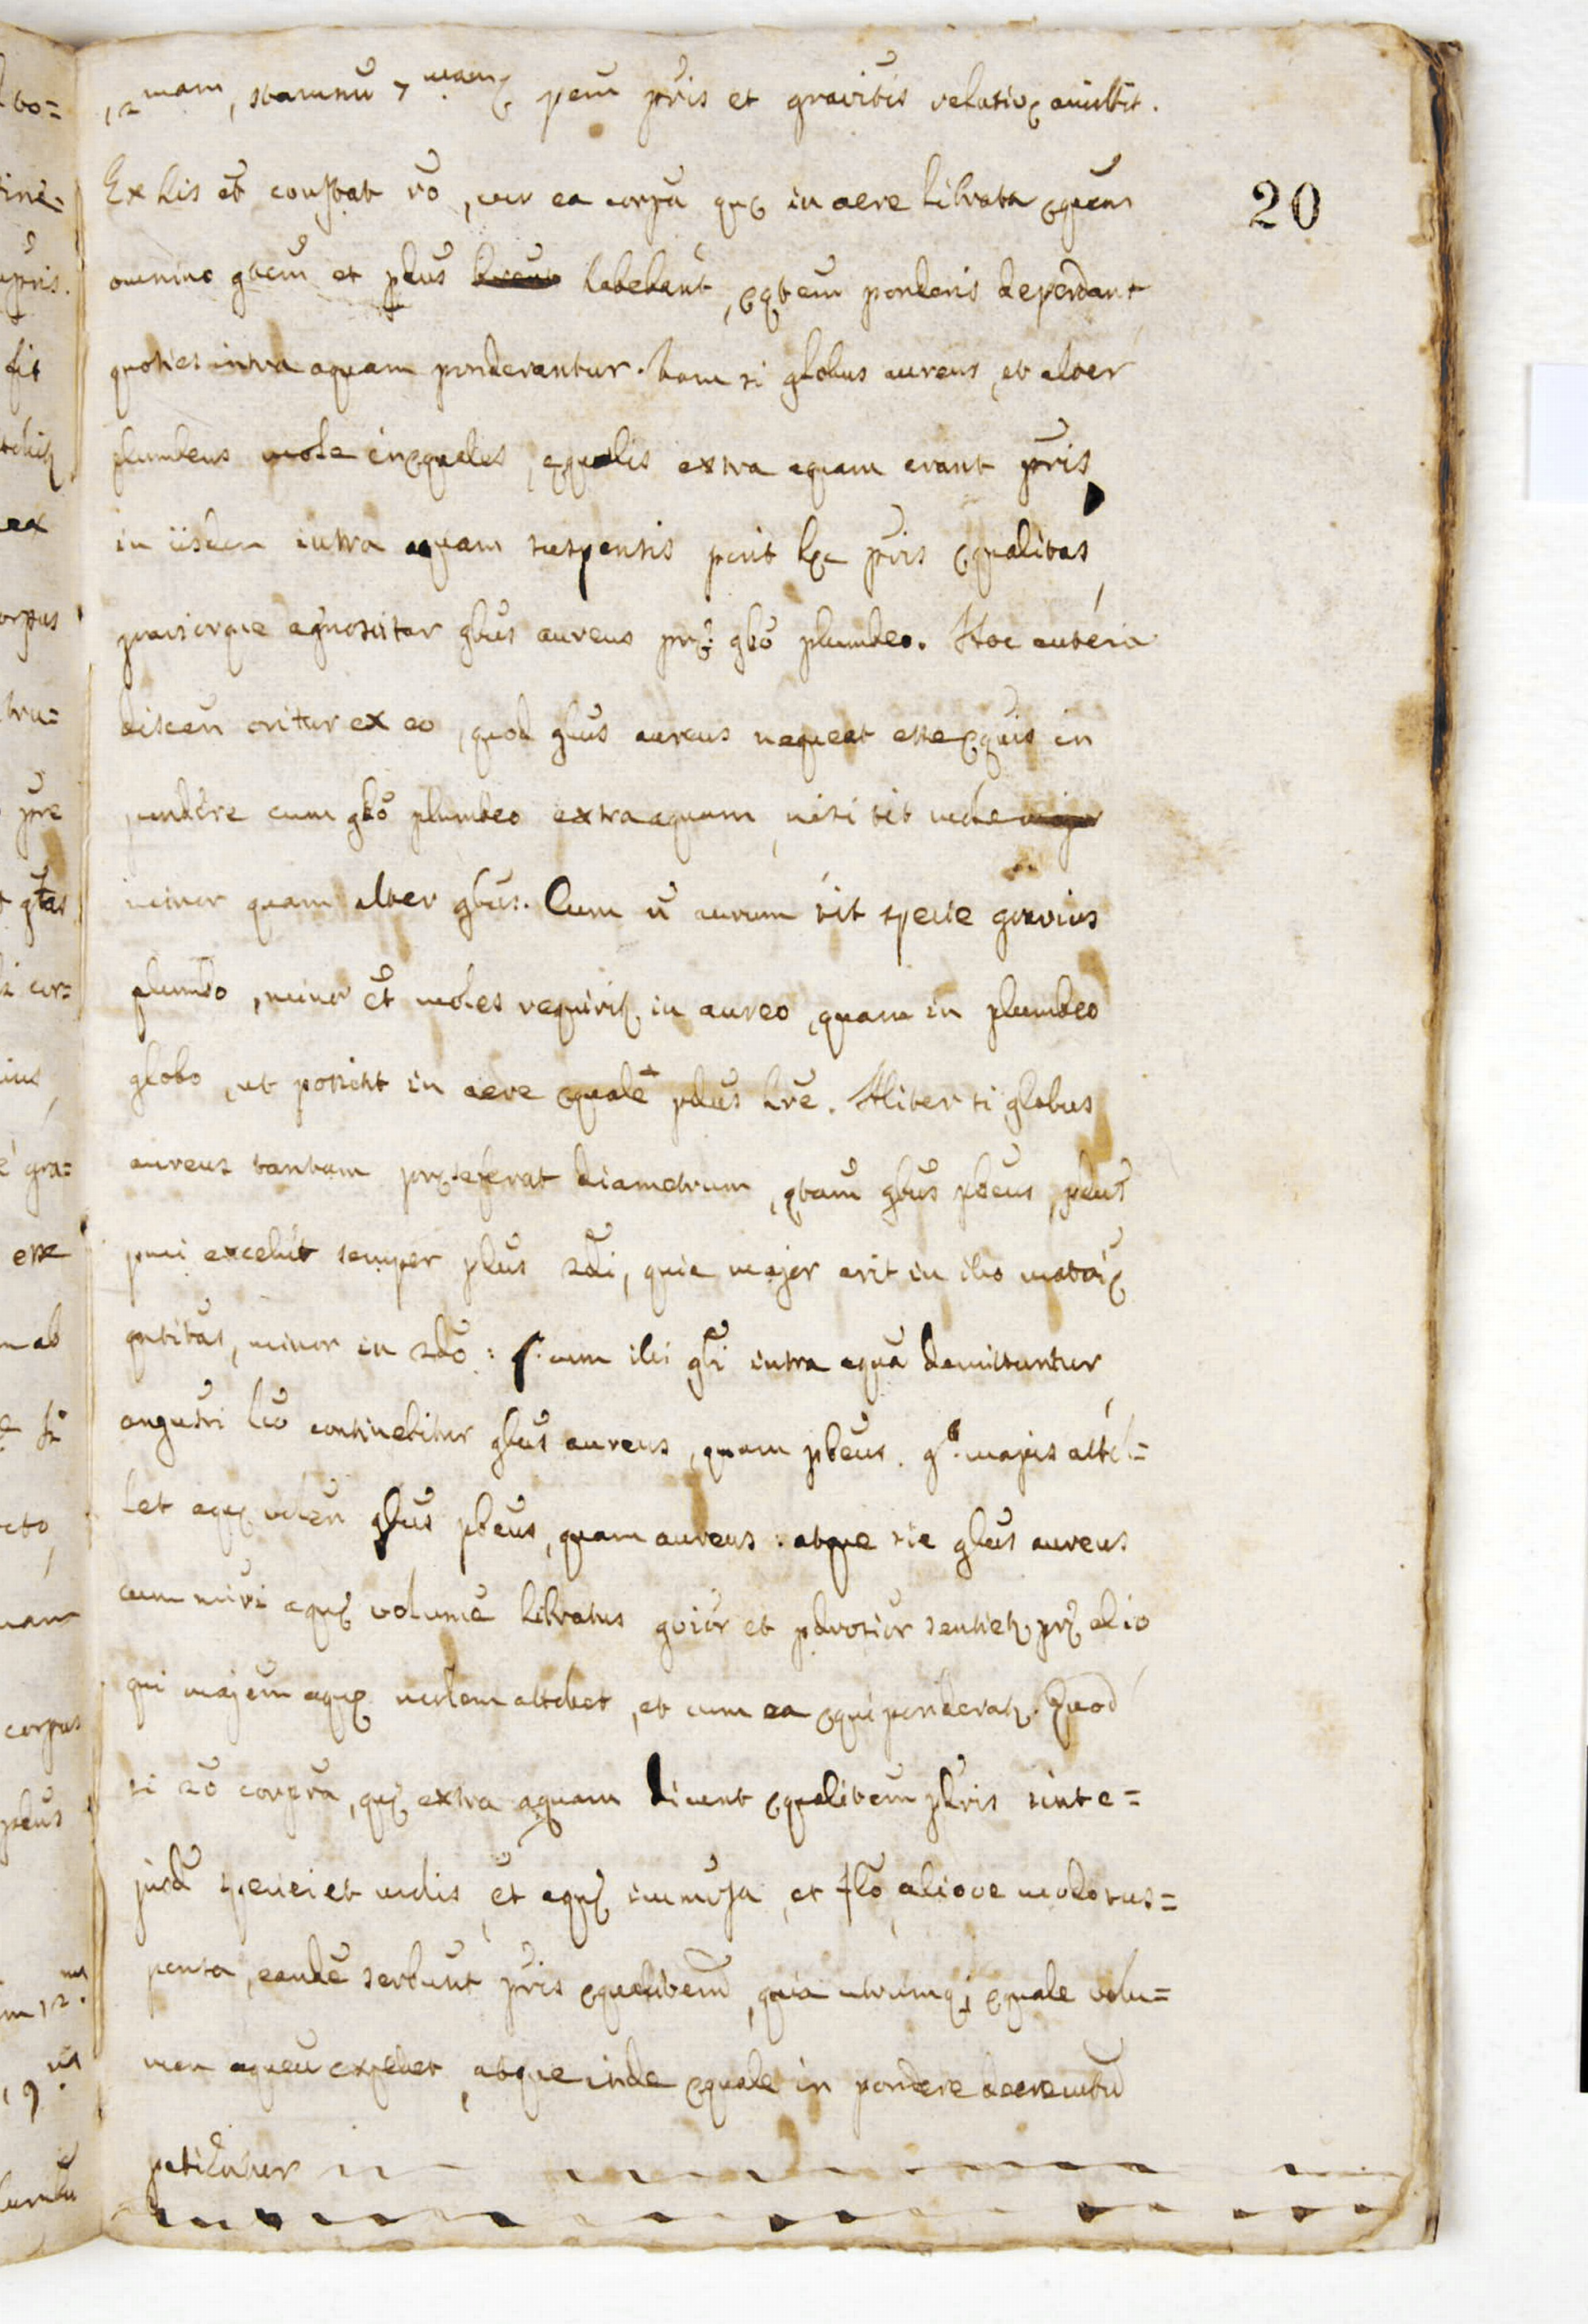 12mam, stannu 7mam pem pris et gravitis relativę amittit.
20
Ex his et constat ro, cur ea corpa quę in aere librata ęquem
omnino gtem et pdus habebant, ęqtem ponderis deperdant
quoties intra aquam ponderantur. Nam si globus aureus, et alter
plumbeus mole inęquales, ęqualis extra aquam erant pris,
in iisdem intra aquam suspensis perit hęc pris ęqualitas,
graviorque agnoscitur gbus aureus prę gbo plumbeo. Hoc autem
discen oritur ex eo, quod gbus aureus nequeat esse ęquis in
pondere cum gbo plumbeo extra aquam, nisi sit mole major
minor quam alter gbus. Cum n aurum sit specie gravius
plumbo, minor et moles requirit in aureo, quam in plumbeo
globo, ut possint in aere ęquale pdus hre. Aliter si globus
aureus tantam pręseferat diametrum, qtam gbus pbeus, pdus
pmi excelet semper pdus 2di, quia major erit in illo matię
qntitas, minor in 2do: s. cum illi gbi intra aqua demittuntur,
angusti lco continebitur gbus aureus, quam pbeus. go. magis attol=
let aquę molem gbus pbeus, quam aureus: atque sic gbus aureus
cum miri aquę volume libratus gvior et pdrosior sentietr prę alio
qui majem aquę molem attollet, et cum ea ęquiponderatr. Quod
si 2o corpora, quę extra aquam dicunt ęqualitem pdris sint e=
jusd speciei et molis, et aquę immersa, et filo aliove modo sus=
pensa, eande serbunt pris ęqualitem, quia utrumq; ęquale volu=
men aqueu expellet, atque inde ęquale in pondere decremtum
patiuntur